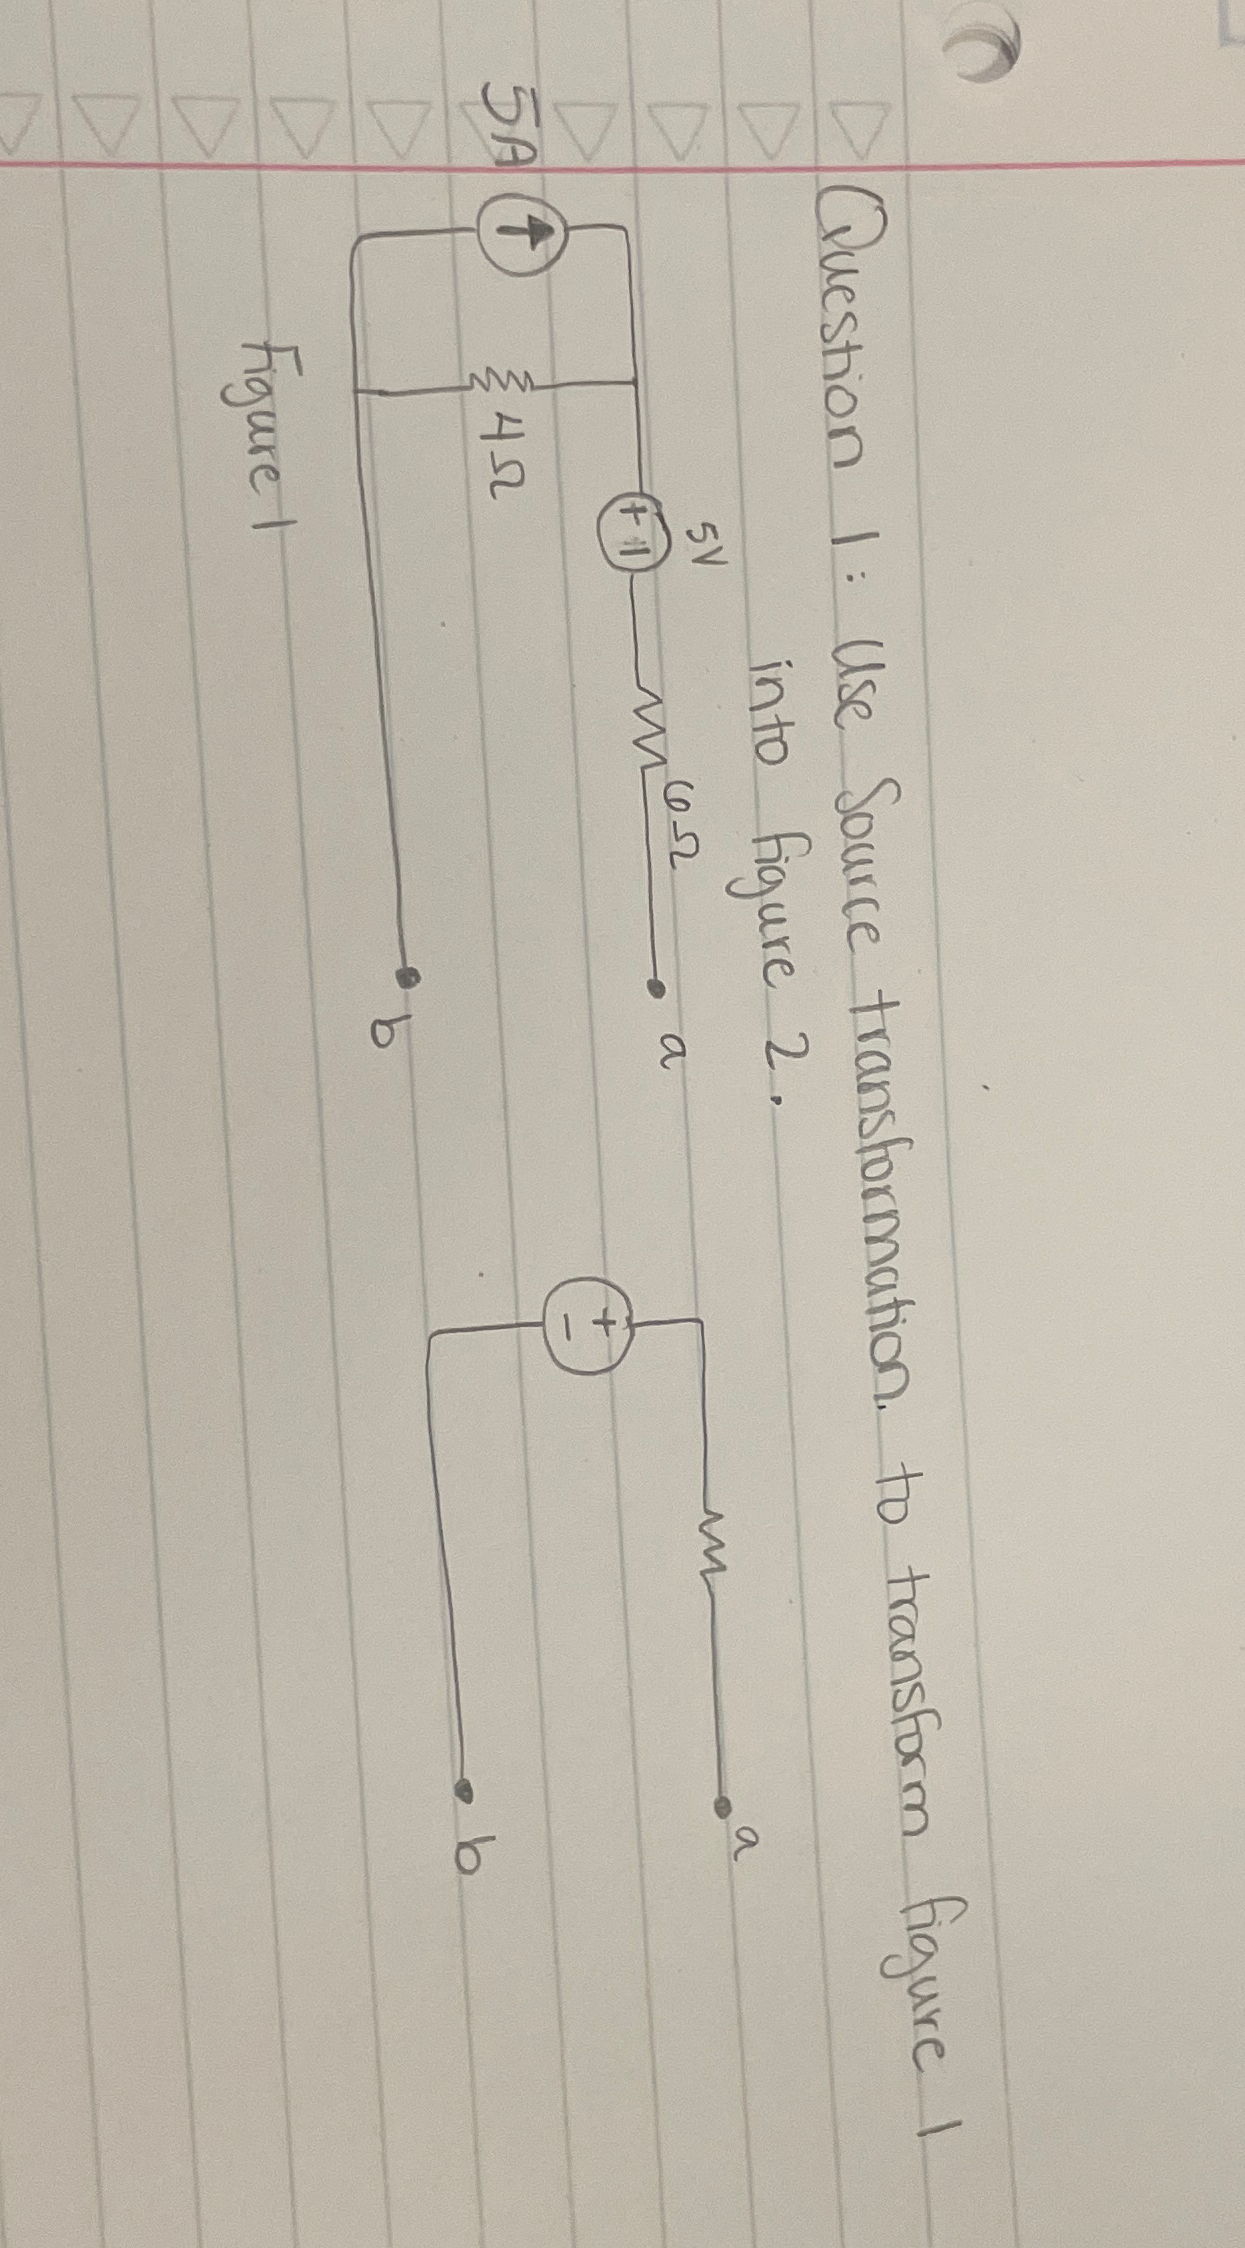 Question 1: Use Source transformation. to transform figure 1
into figure 2.
5V
6Ω
a
a
5A
4Ω
+
-
+
-
b
b
Figure 1